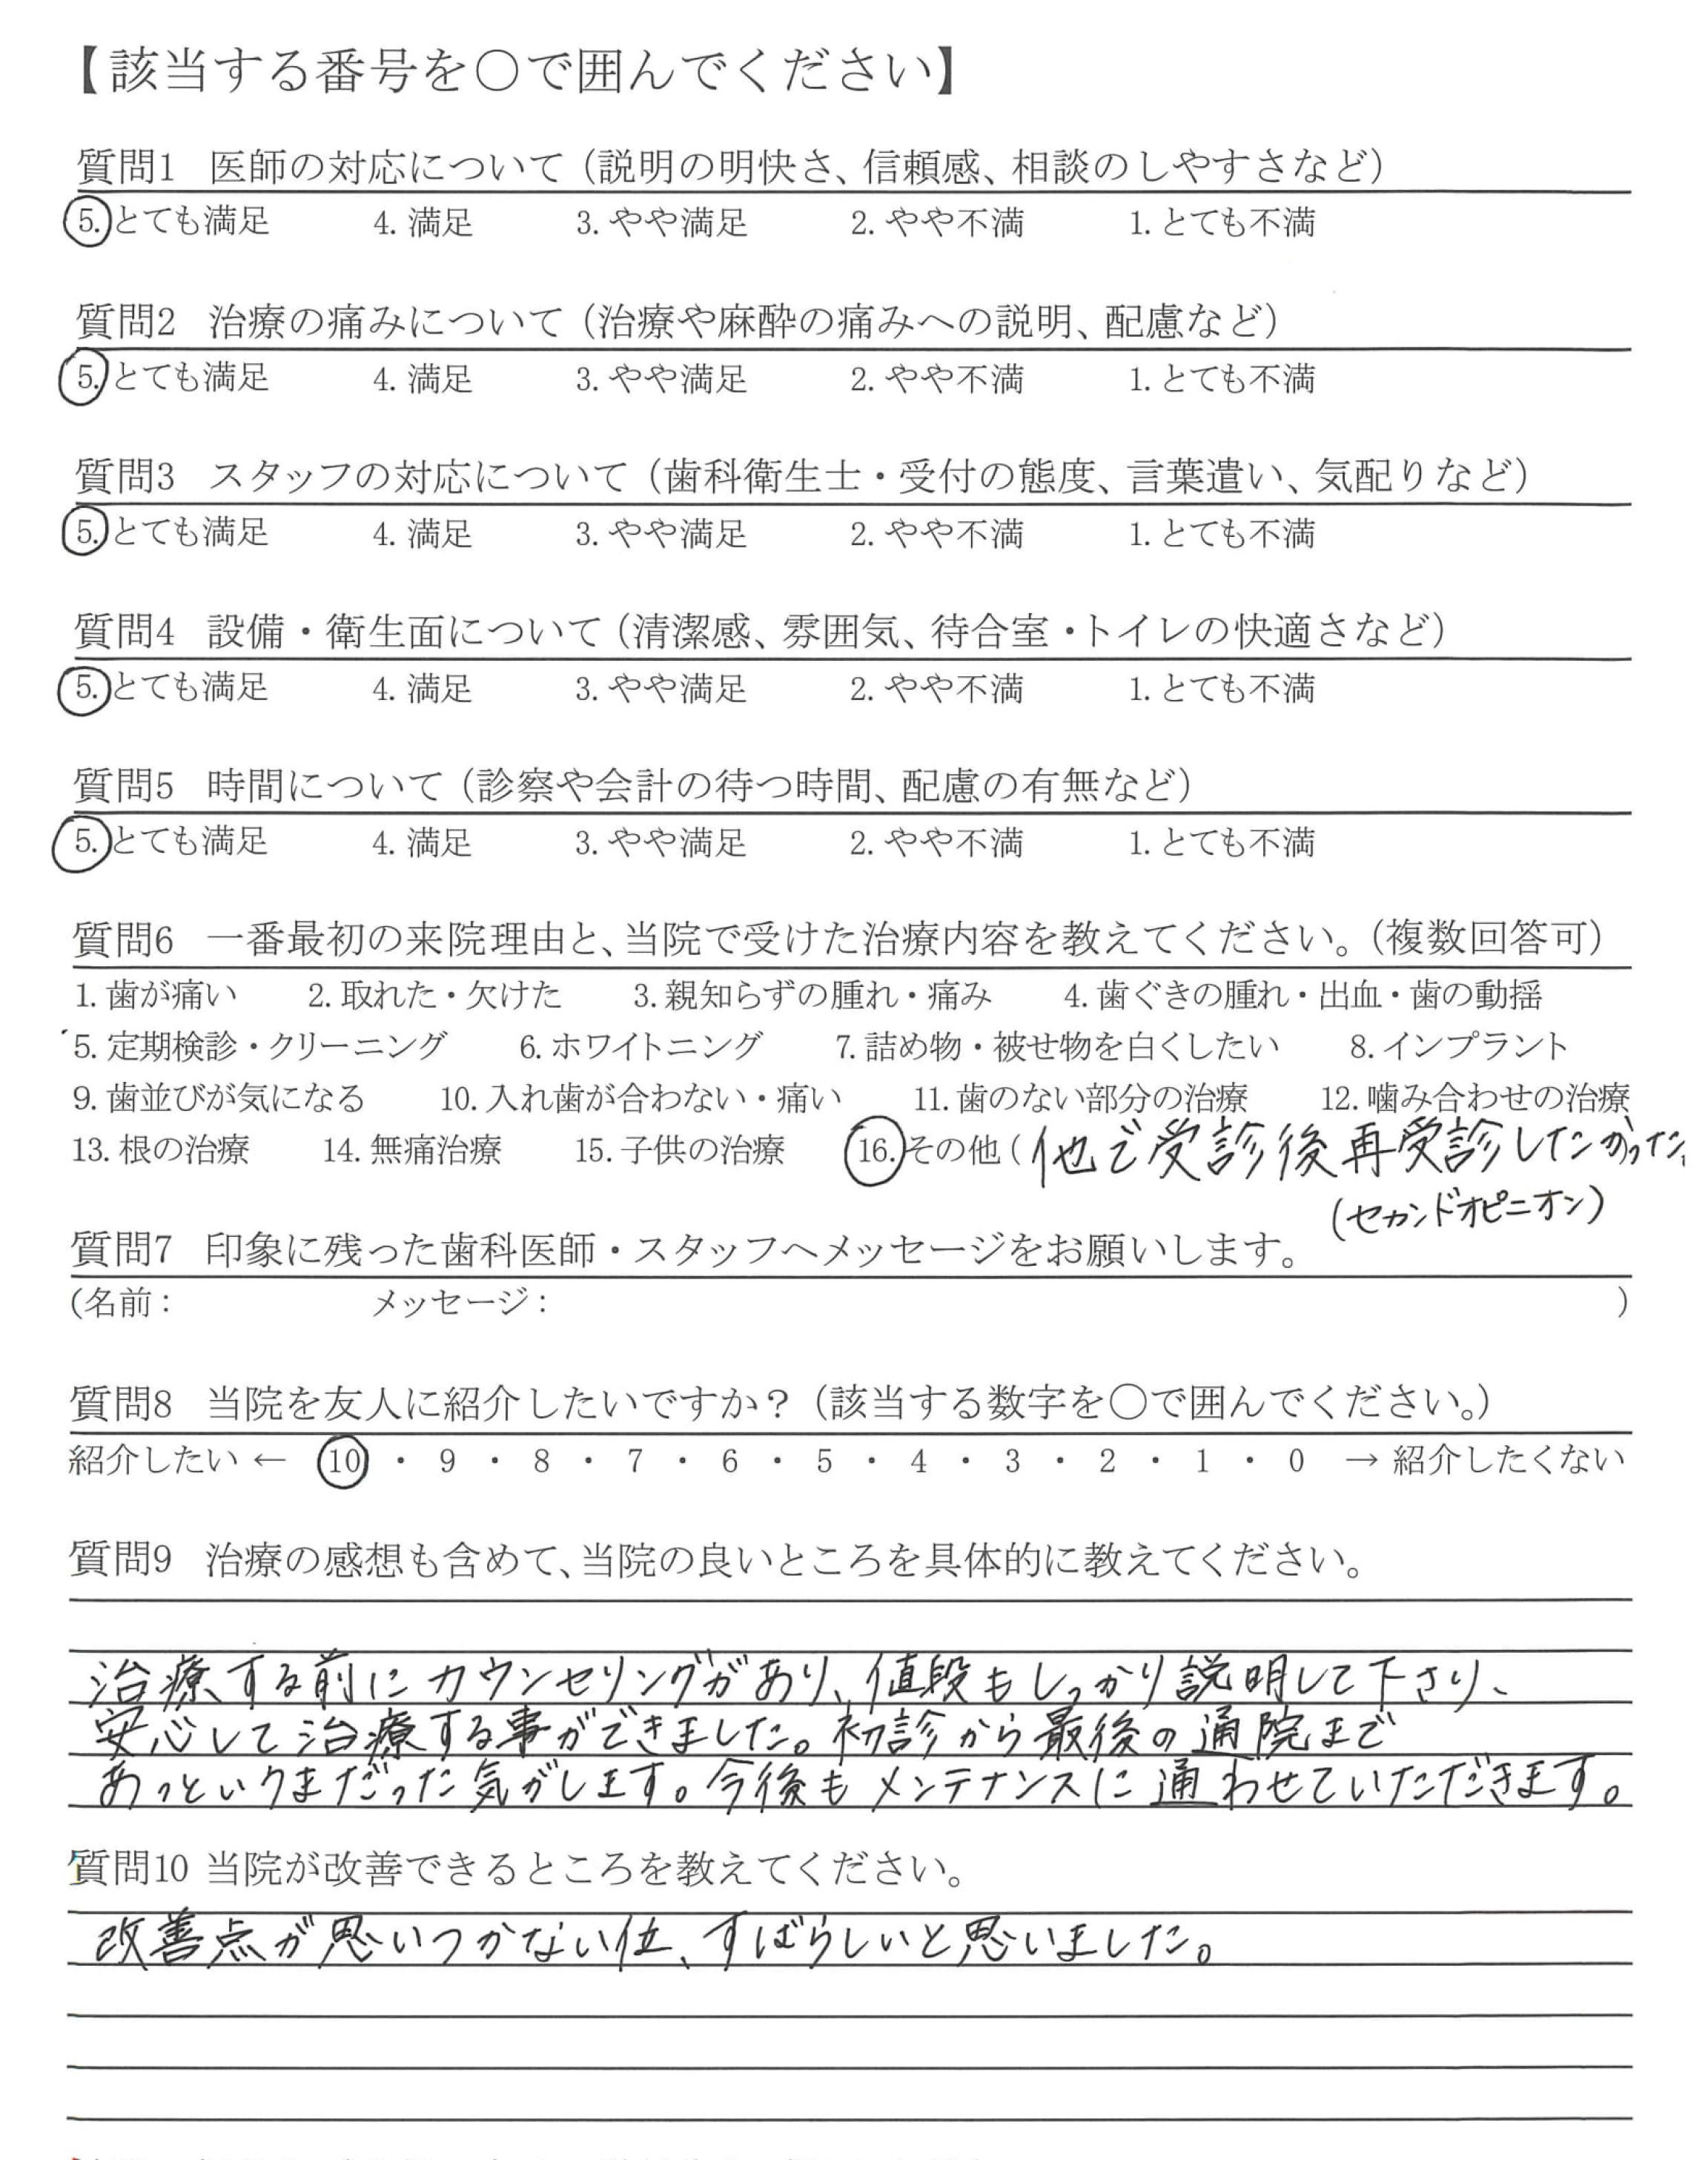 【該当する番号を〇で囲んでください】
質問1 医師の対応について（説明の明快さ、信頼感、相談のしやすさなど）
5. とても満足 4. 満足 3. やや満足 2. やや不満 1. とても不満
質問2 治療の痛みについて（治療や麻酔の痛みへの説明、配慮など）
5. とても満足 4. 満足 3. やや満足 2. やや不満 1. とても不満
質問3 スタッフの対応について（歯科衛生士・受付の態度、言葉遣い、気配りなど）
5. とても満足 4. 満足 3. やや満足 2. やや不満 1. とても不満
質問4 設備・衛生面について（清潔感、雰囲気、待合室・トイレの快適さなど）
5. とても満足 4. 満足 3. やや満足 2. やや不満 1. とても不満
質問5 時間について（診察や会計の待つ時間、配慮の有無など）
5. とても満足 4. 満足 3. やや満足 2. やや不満 1. とても不満
質問6 一番最初の来院理由と、当院で受けた治療内容を教えてください。（複数回答可）
1. 歯が痛い 2. 取れた・欠けた 3. 親知らずの腫れ・痛み 4. 歯ぐきの腫れ・出血・歯の動揺
5. 定期検診・クリーニング 6. ホワイトニング 7. 詰め物・被せ物を白くしたい 8. インプラント
9. 歯並びが気になる 10. 入れ歯が合わない・痛い 11. 歯のない部分の治療 12. 噛み合わせの治療
13. 根の治療 14. 無痛治療 15. 子供の治療 16. その他（他で受診後再受診したかった
(セカンドオピニオン)
質問7 印象に残った歯科医師・スタッフへメッセージをお願いします。
(名前： メッセージ： )
質問8 当院を友人に紹介したいですか？（該当する数字を〇で囲んでください。）
紹介したい ← 10 ・ 9 ・ 8 ・ 7 ・ 6 ・ 5 ・ 4 ・ 3 ・ 2 ・ 1 ・ 0 → 紹介したくない
質問9 治療の感想も含めて、当院の良いところを具体的に教えてください。
治療する前にカウンセリングがあり、値段もしっかり説明して下さり、
安心して治療する事ができました。初診から最後の通院まで
あっというまだった気がします。今後もメンテナンスに通わせていただきます。
質問10 当院が改善できるところを教えてください。
改善点が思いつかない位、すばらしいと思いました。